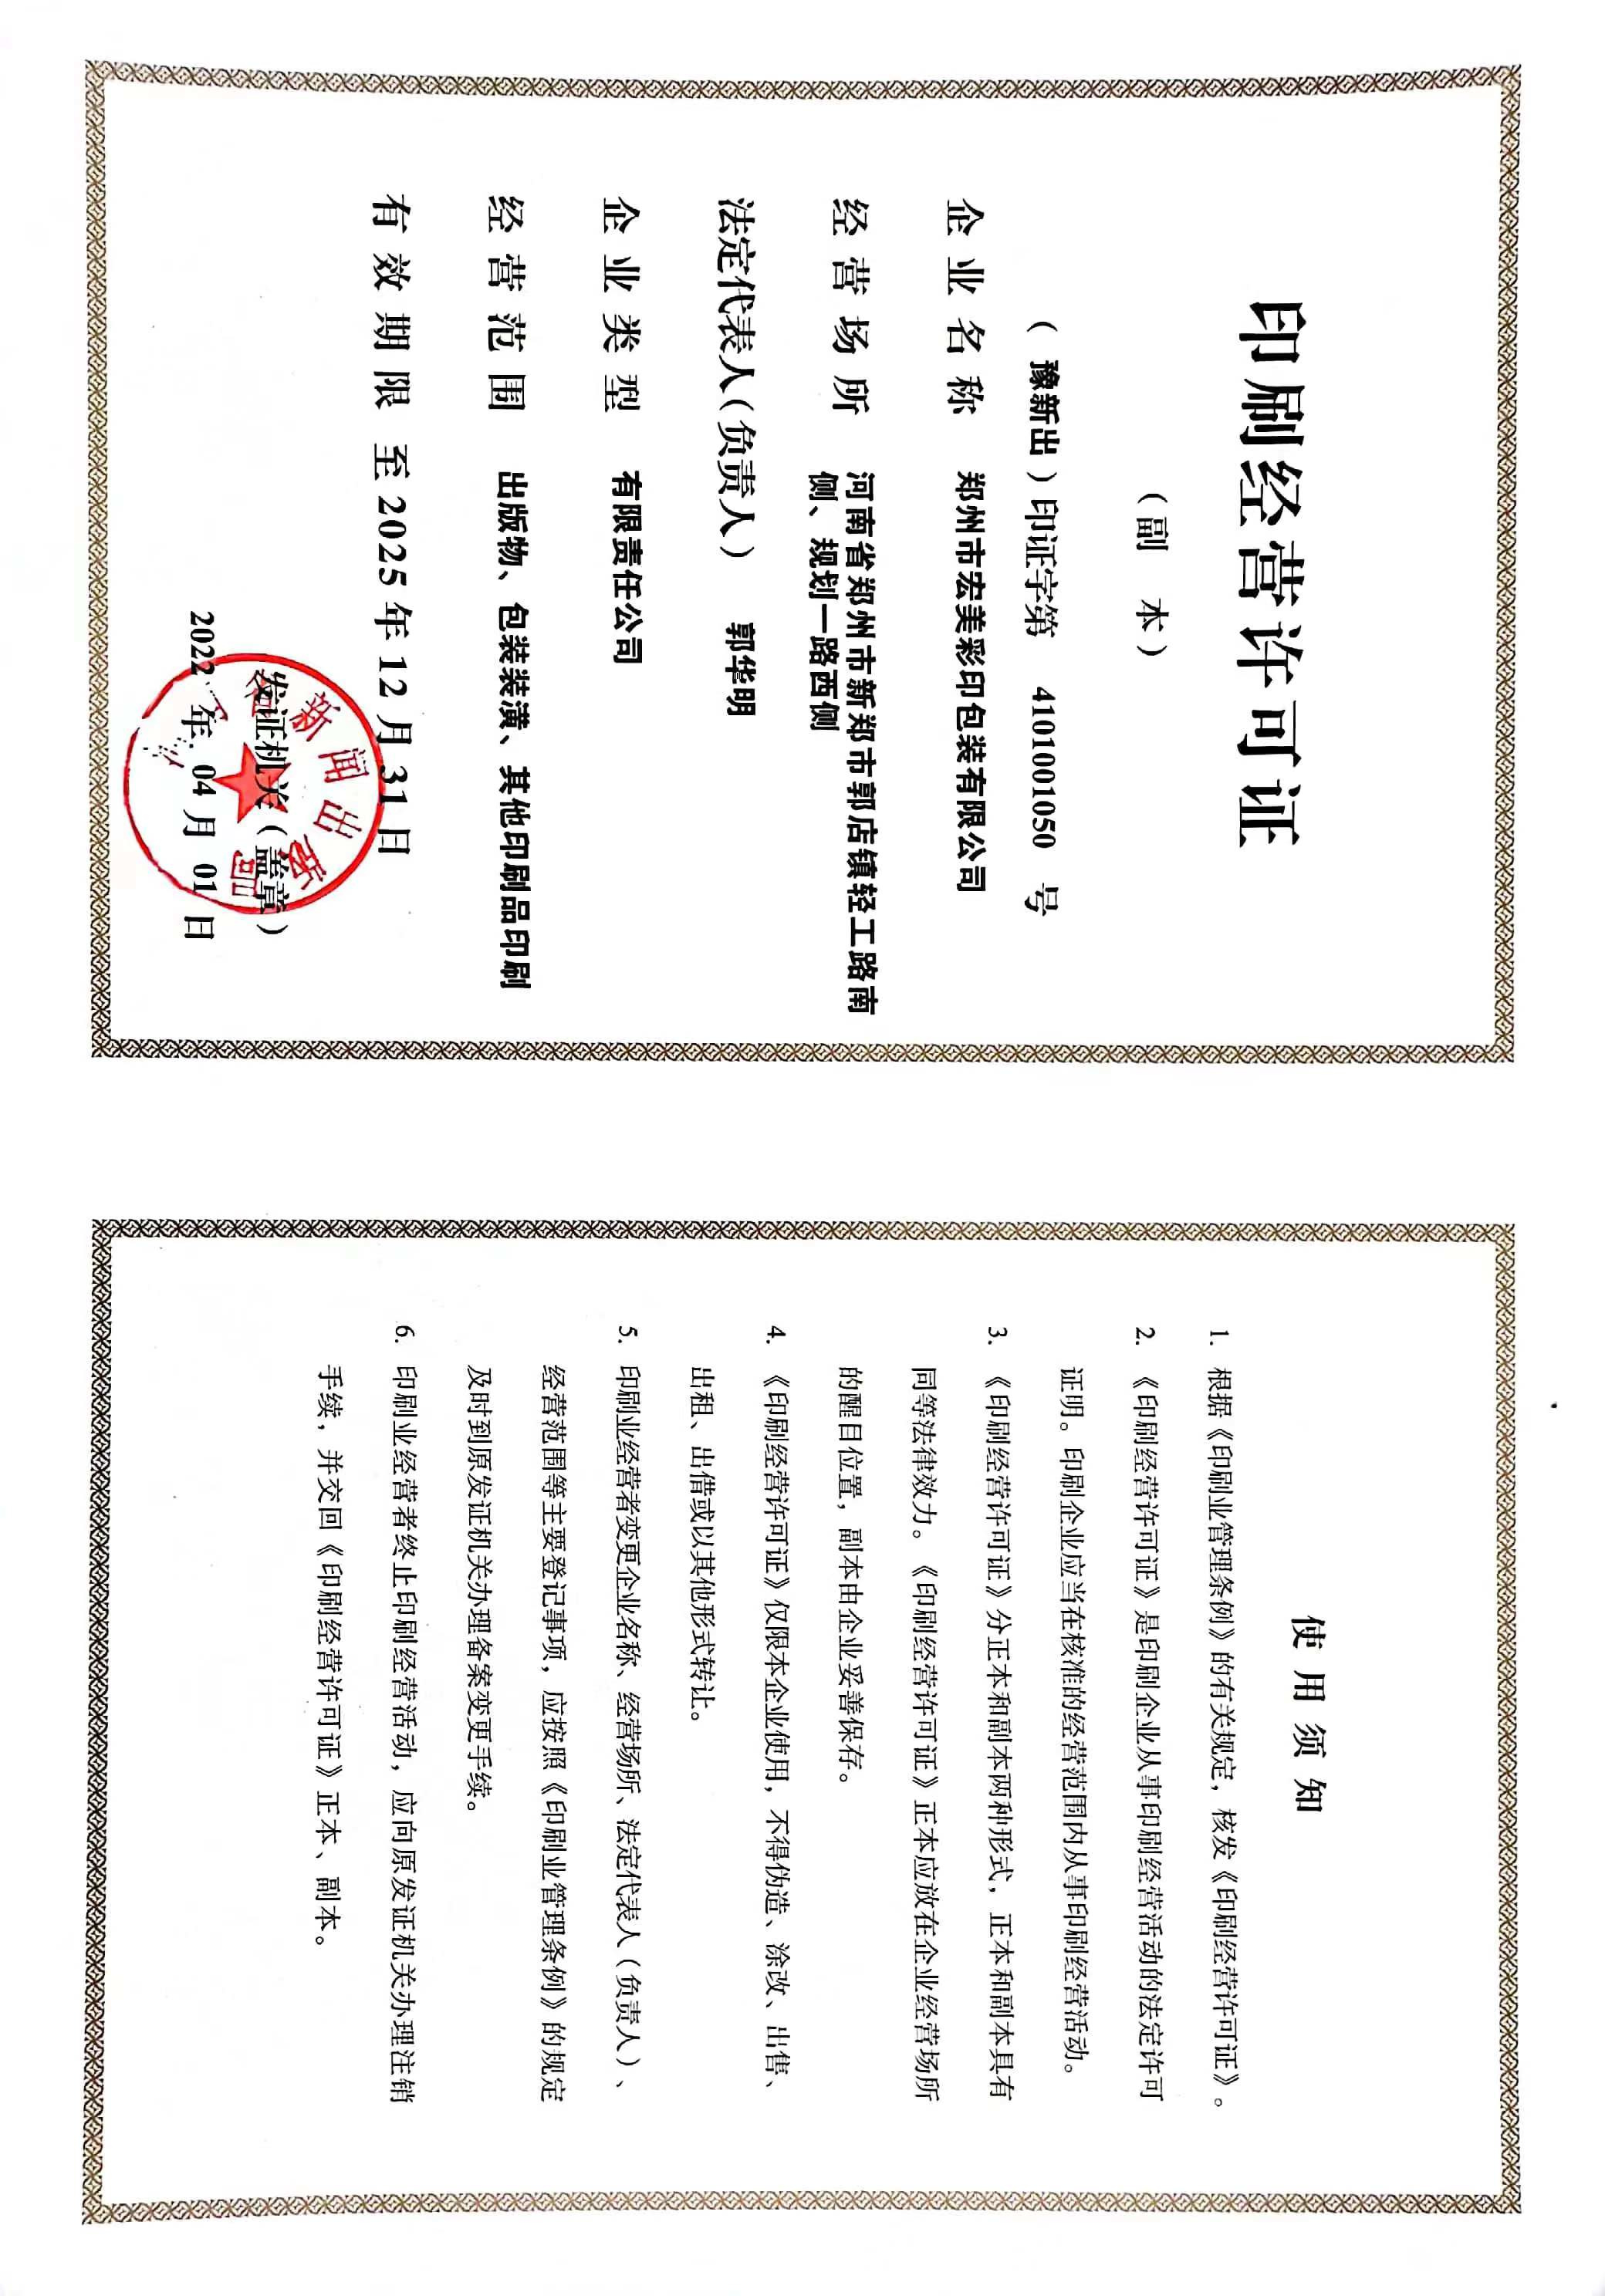 印刷经营许可证
（副 本）
（豫新出）印证字第 4101001050 号
企业名称 郑州市宏美彩印包装有限公司
经营场所 河南省郑州市新郑市郭店镇轻工路南
侧、规划一路西侧
法定代表人（负责人） 郭华明
企业类型 有限责任公司
经营范围 出版物、包装装潢、其他印刷品印刷
有效期限 至2025年12月31日
发证机关（盖章）
2022年 04月 01日
新闻出
使用须知
1. 根据《印刷业管理条例》的有关规定，核发《印刷经营许可证》。
2. 《印刷经营许可证》是印刷企业从事印刷经营活动的法定许可
证明。印刷企业应当在核准的经营范围内从事印刷经营活动。
3. 《印刷经营许可证》分正本和副本两种形式，正本和副本具有
同等法律效力。《印刷经营许可证》正本应放在企业经营场所
的醒目位置，副本由企业妥善保存。
4. 《印刷经营许可证》仅限本企业使用，不得伪造、涂改、出售、
出租、出借或以其他形式转让。
5. 印刷业经营者变更企业名称、经营场所、法定代表人（负责人）、
经营范围等主要登记事项，应按照《印刷业管理条例》的规定
及时到原发证机关办理备案变更手续。
6. 印刷业经营者终止印刷经营活动，应向原发证机关办理注销
手续，并交回《印刷经营许可证》正本、副本。